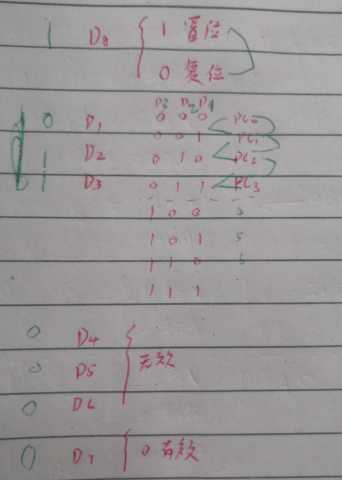 1 D0 1 置位
0 复位
D3 D2 D1
0 D1 0 0 0 PC0
0 0 1 PC1
1 D2 0 1 0 PC2
1 D3 0 1 1 PC3
1 0 0
1 0 1 5
1 1 0 6
1 1 1
0 D4
0 D5 无效
0 D6
0 D7 0 有效